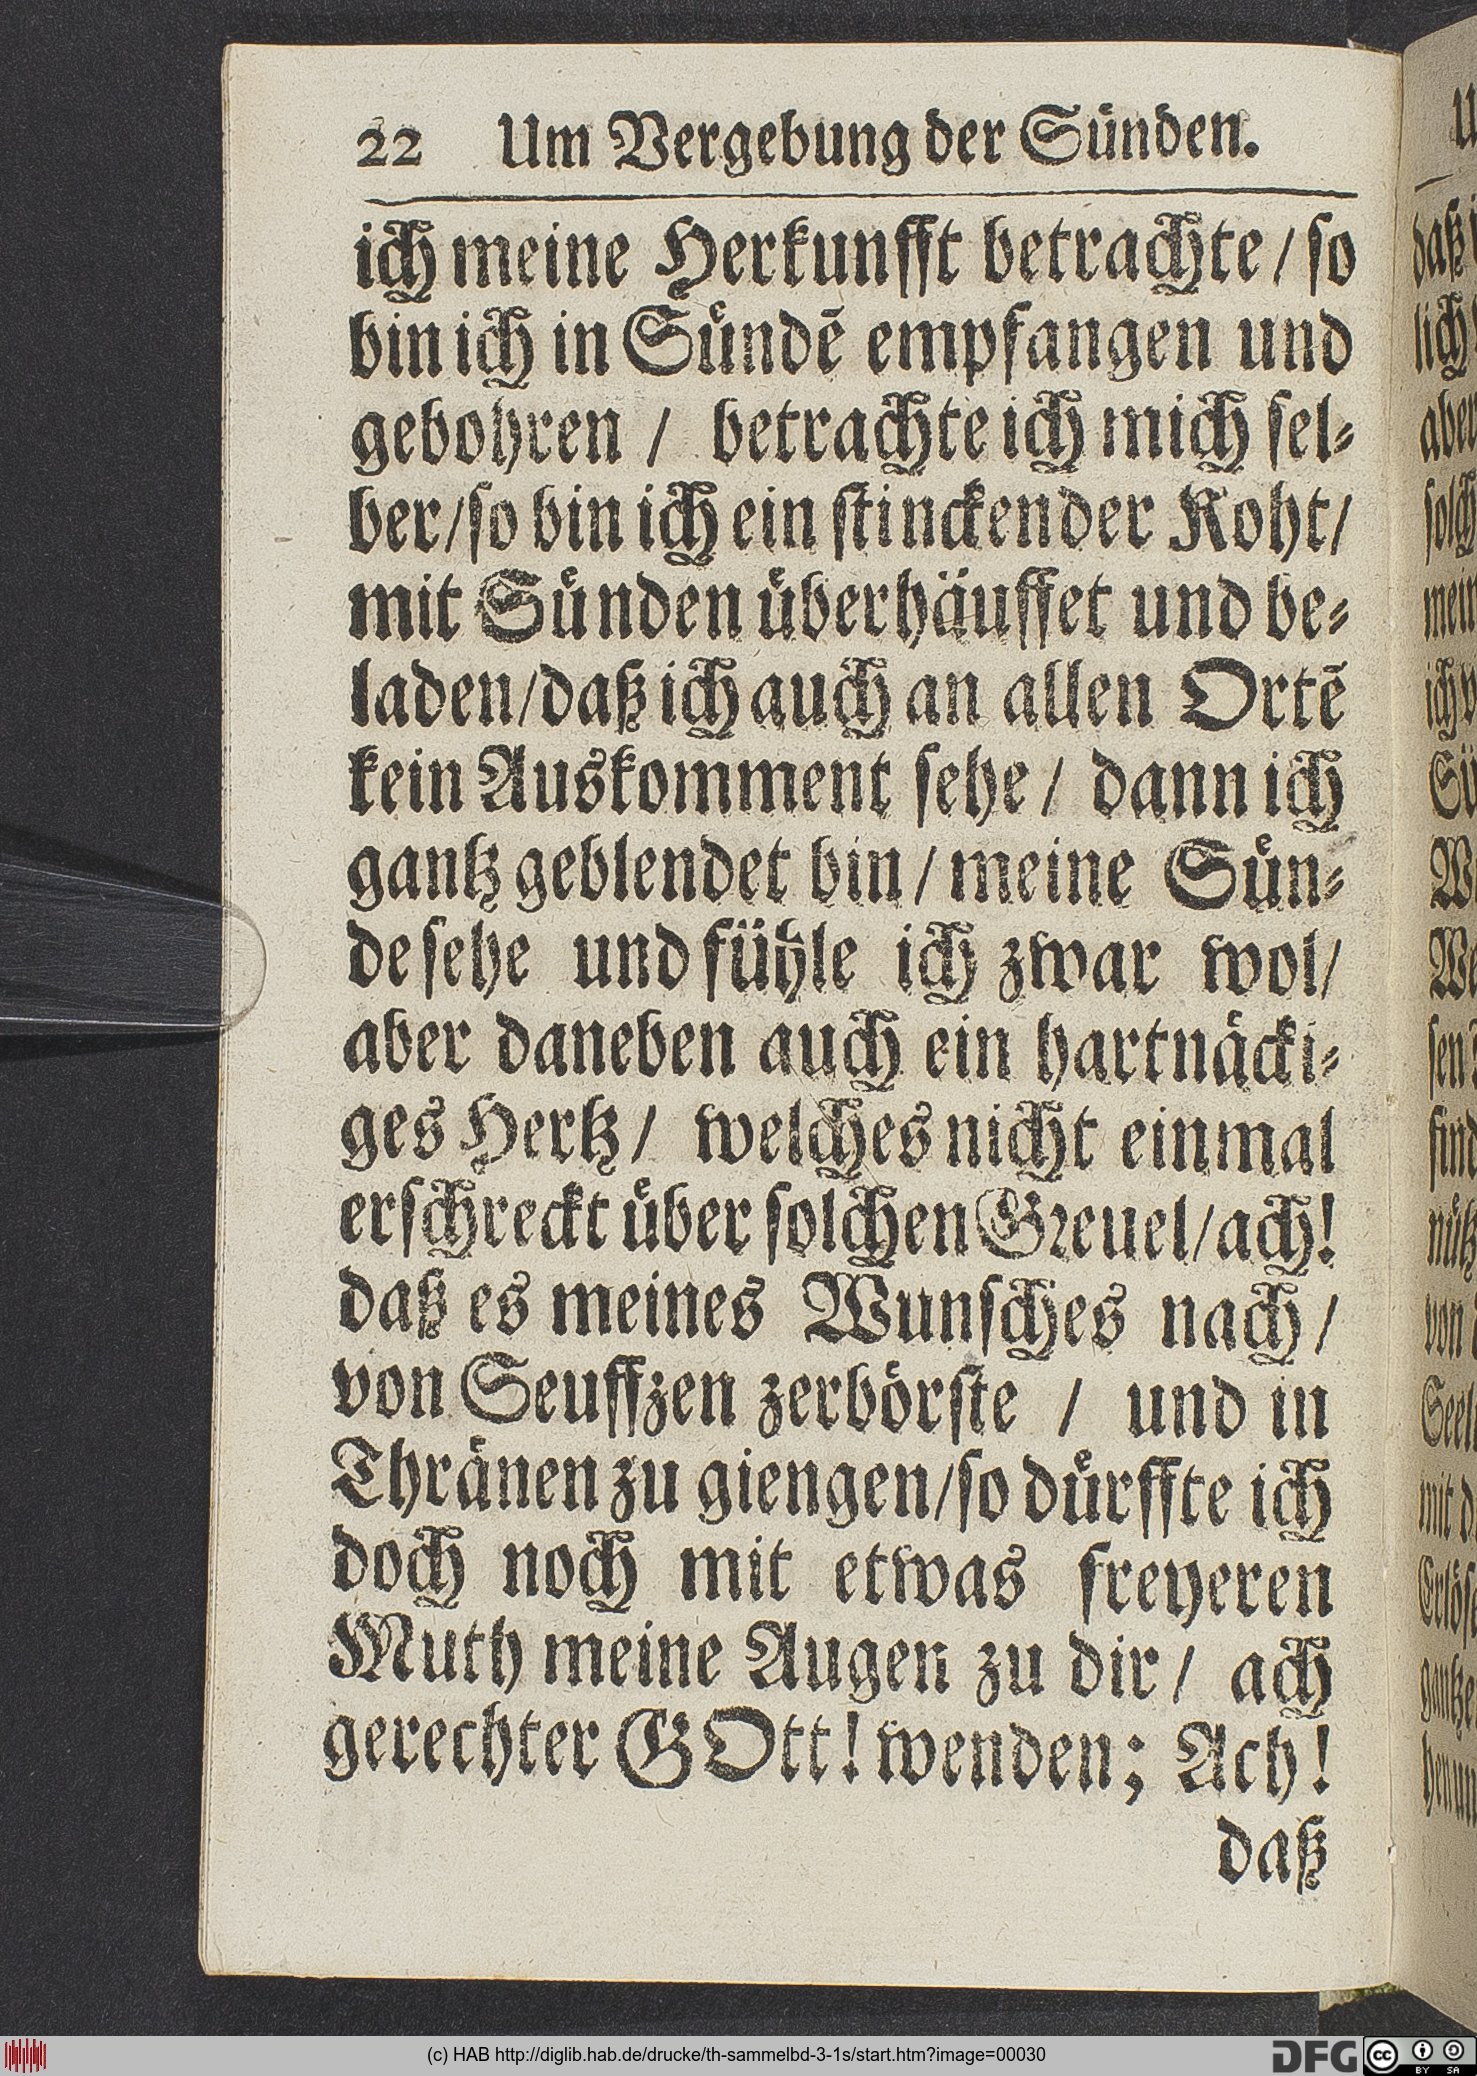 22 Um Vergebung der Sünden.
ich meine Herkunfft betrachte / so
bin ich in Sündẽ empfangen und
gebohren / betrachte ich mich sel⸗
ber / so bin ich ein stinckender Koht /
mit Sünden überhäuffet und be⸗
laden / daß ich auch an allen Ortẽ
kein Auskomment sehe / dann ich
gantz geblendet bin / meine Sün⸗
de sehe und fühle ich zwar wol /
aber daneben auch ein hartnäcki⸗
ges Hertz / welches nicht einmal
erschreckt über solchen Greuel / ach!
daß es meines Wunsches nach /
von Seuffzen zerbörste / und in
Thränen zu giengen / so dürffte ich
doch noch mit etwas freyeren
Muth meine Augen zu dir / ach
gerechter GOtt! wenden; Ach!
daß
(c) HAB http://diglib.hab.de/drucke/th-sammelbd-3-1s/start.htm?image=00030
DFG
cc BY SA